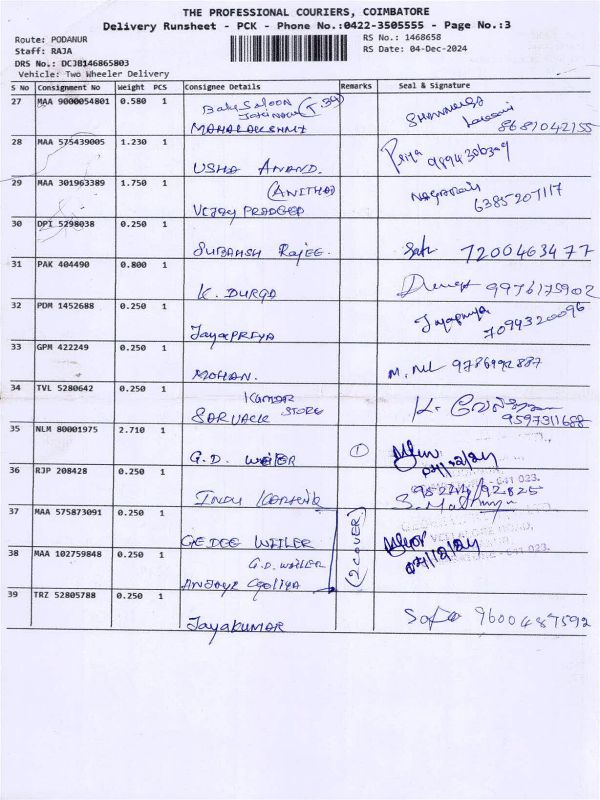 THE PROFESSIONAL COURIERS, COIMBATORE
Delivery Runsheet - PCK - Phone No.:0422-3505555 - Page No.:3
Route: PODANUR
Staff: RAJA
DRS No.: DCJB146865803
Vehicle: Two Wheeler Delivery
RS No.: 1468658
RS Date: 04-Dec-2024
S No Consignment No Weight PCS Consignee Details Remarks Seal & Signature
27 MAA 9000054801 0.580 1
MAHALAKSHMI 8681042155
28 MAA 575439005 1.230 1 Priya
USHA ANAND.
29 MAA 301963389 1.750 1 (ANITHA)
VIJAY PRADEEP 6385207117
30 DPI 5298038 0.250 1
SUBAHSH RAJEE. 7200463477
31 PAK 404490 0.800 1
K. DURGA 9976175902
32 PDM 1452688 0.250 1 Jayapriya
JayaPRIYA 7094320096
33 GPM 422249 0.250 1
MOHAN. 9786992887
34 TVL 5280642 0.250 1 KUMAR
STORE 9597311688
35 NLM 80001975 2.710 1
G.D. WEILER 1
36 RJP 208428 0.250 1
INDU
37 MAA 575873091 0.250 1
GEDEE WEILER (2 COVER)
38 MAA 102759848 0.250 1 G.D. WEILER
39 TRZ 52805788 0.250 1
JayaKUMAR 9600487592